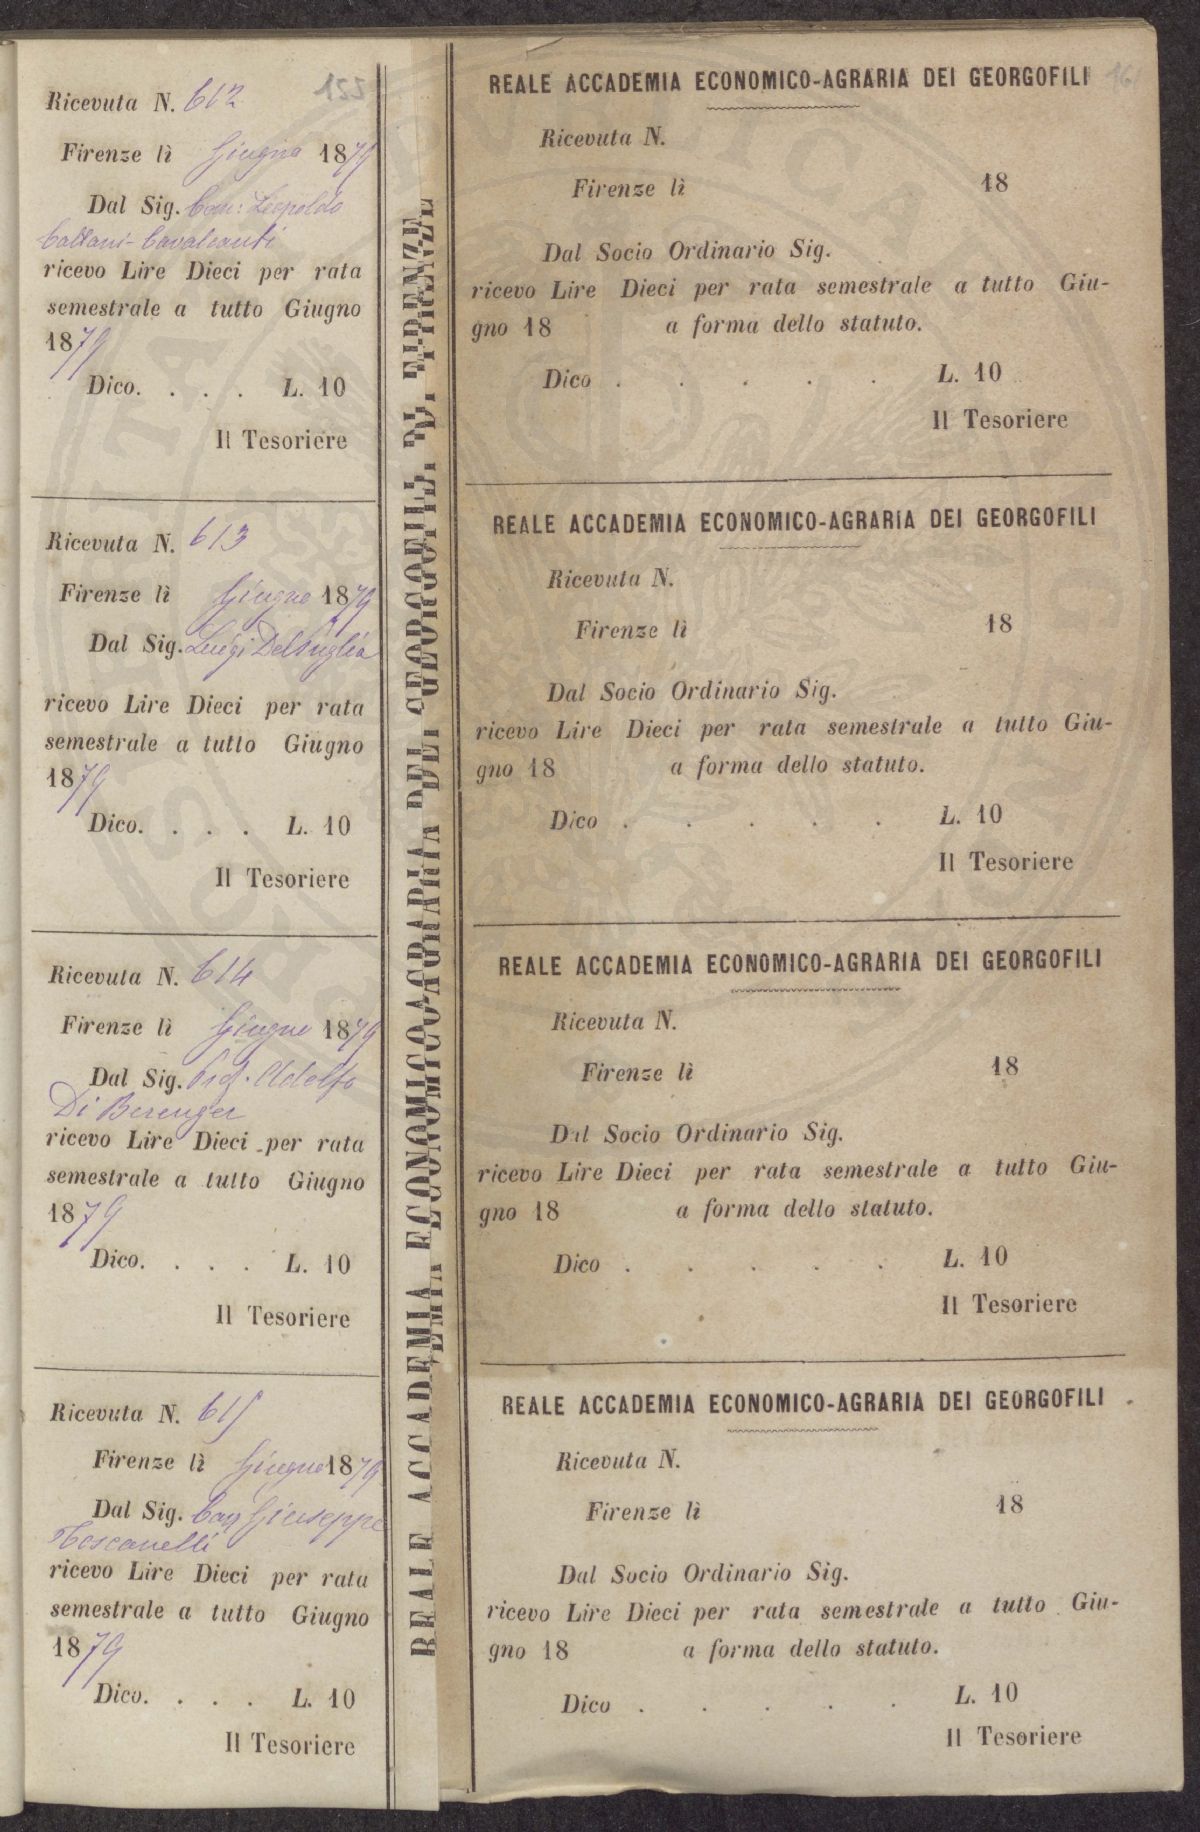 Ricevuta N. 612
Firenze lì Giugno 1879
Dal Sig. Leopoldo
Cattani-Cavalcanti
ricevo Lire Dieci per rata
semestrale a tutto Giugno
1879
Dico. . . . L. 10
Il Tesoriere
Ricevuta N. 613
Firenze lì Giugno 1879
Dal Sig. Luigi Del Puglia
ricevo Lire Dieci per rata
semestrale a tutto Giugno
1879
Dico. . . . L. 10
Il Tesoriere
Ricevuta N. 614
Firenze lì Giugno 1879
Dal Sig. Prof. Adolfo
Di Berenger
ricevo Lire Dieci per rata
semestrale a tutto Giugno
1879
Dico. . . . L. 10
Il Tesoriere
Ricevuta N. 615
Firenze lì Giugno 1879
Dal Sig. Cav Giuseppe
Toscanelli
ricevo Lire Dieci per rata
semestrale a tutto Giugno
1879
Dico. . . . L. 10
Il Tesoriere
REALE ACCADEMIA ECONOMICO-AGRARIA DEI GEORGOFILI DI FIRENZE
REALE ACCADEMIA ECONOMICO-AGRARIA DEI GEORGOFILI
Ricevuta N.
Firenze lì 18
Dal Socio Ordinario Sig.
ricevo Lire Dieci per rata semestrale a tutto Giu-
gno 18 a forma dello statuto.
Dico . . . . . L. 10
Il Tesoriere
REALE ACCADEMIA ECONOMICO-AGRARIA DEI GEORGOFILI
Ricevuta N.
Firenze lì 18
Dal Socio Ordinario Sig.
ricevo Lire Dieci per rata semestrale a tutto Giu-
gno 18 a forma dello statuto.
Dico . . . . . L. 10
Il Tesoriere
REALE ACCADEMIA ECONOMICO-AGRARIA DEI GEORGOFILI
Ricevuta N.
Firenze lì 18
Dal Socio Ordinario Sig.
ricevo Lire Dieci per rata semestrale a tutto Giu-
gno 18 a forma dello statuto.
Dico . . . . . L. 10
Il Tesoriere
REALE ACCADEMIA ECONOMICO-AGRARIA DEI GEORGOFILI
Ricevuta N.
Firenze lì 18
Dal Socio Ordinario Sig.
ricevo Lire Dieci per rata semestrale a tutto Giu-
gno 18 a forma dello statuto.
Dico . . . . . L. 10
Il Tesoriere